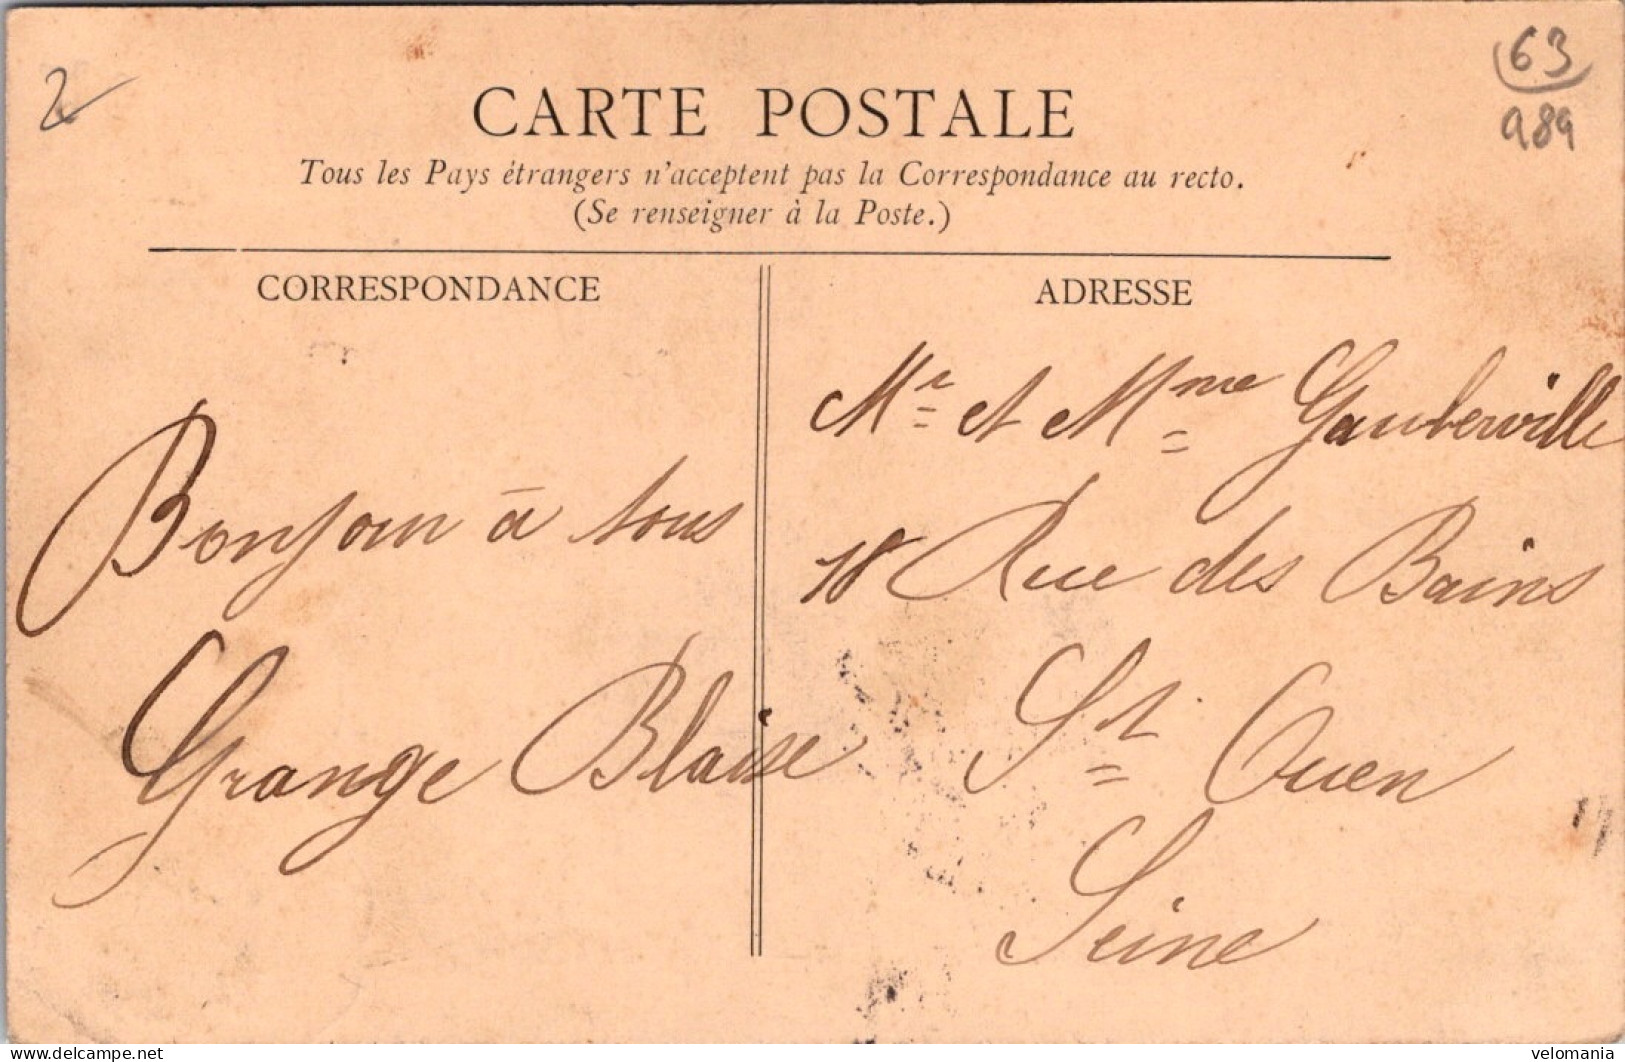 2
63
989
CARTE POSTALE
Tous les Pays étrangers n'acceptent pas la Correspondance au recto.
(Se renseigner à la Poste.)
CORRESPONDANCE
Bonjour à tous
Grange Blaise
ADRESSE
Mr et Mme Gauberville
18 Rue des Bains
St Ouen
Seine
delcampe.net
velomania